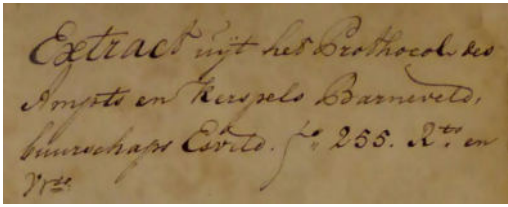 Extract uijt het Prothocol des
Ampts en Kerspels Barneveld,
buurschaps Esveld. fo: 255. Rto en
Vrso